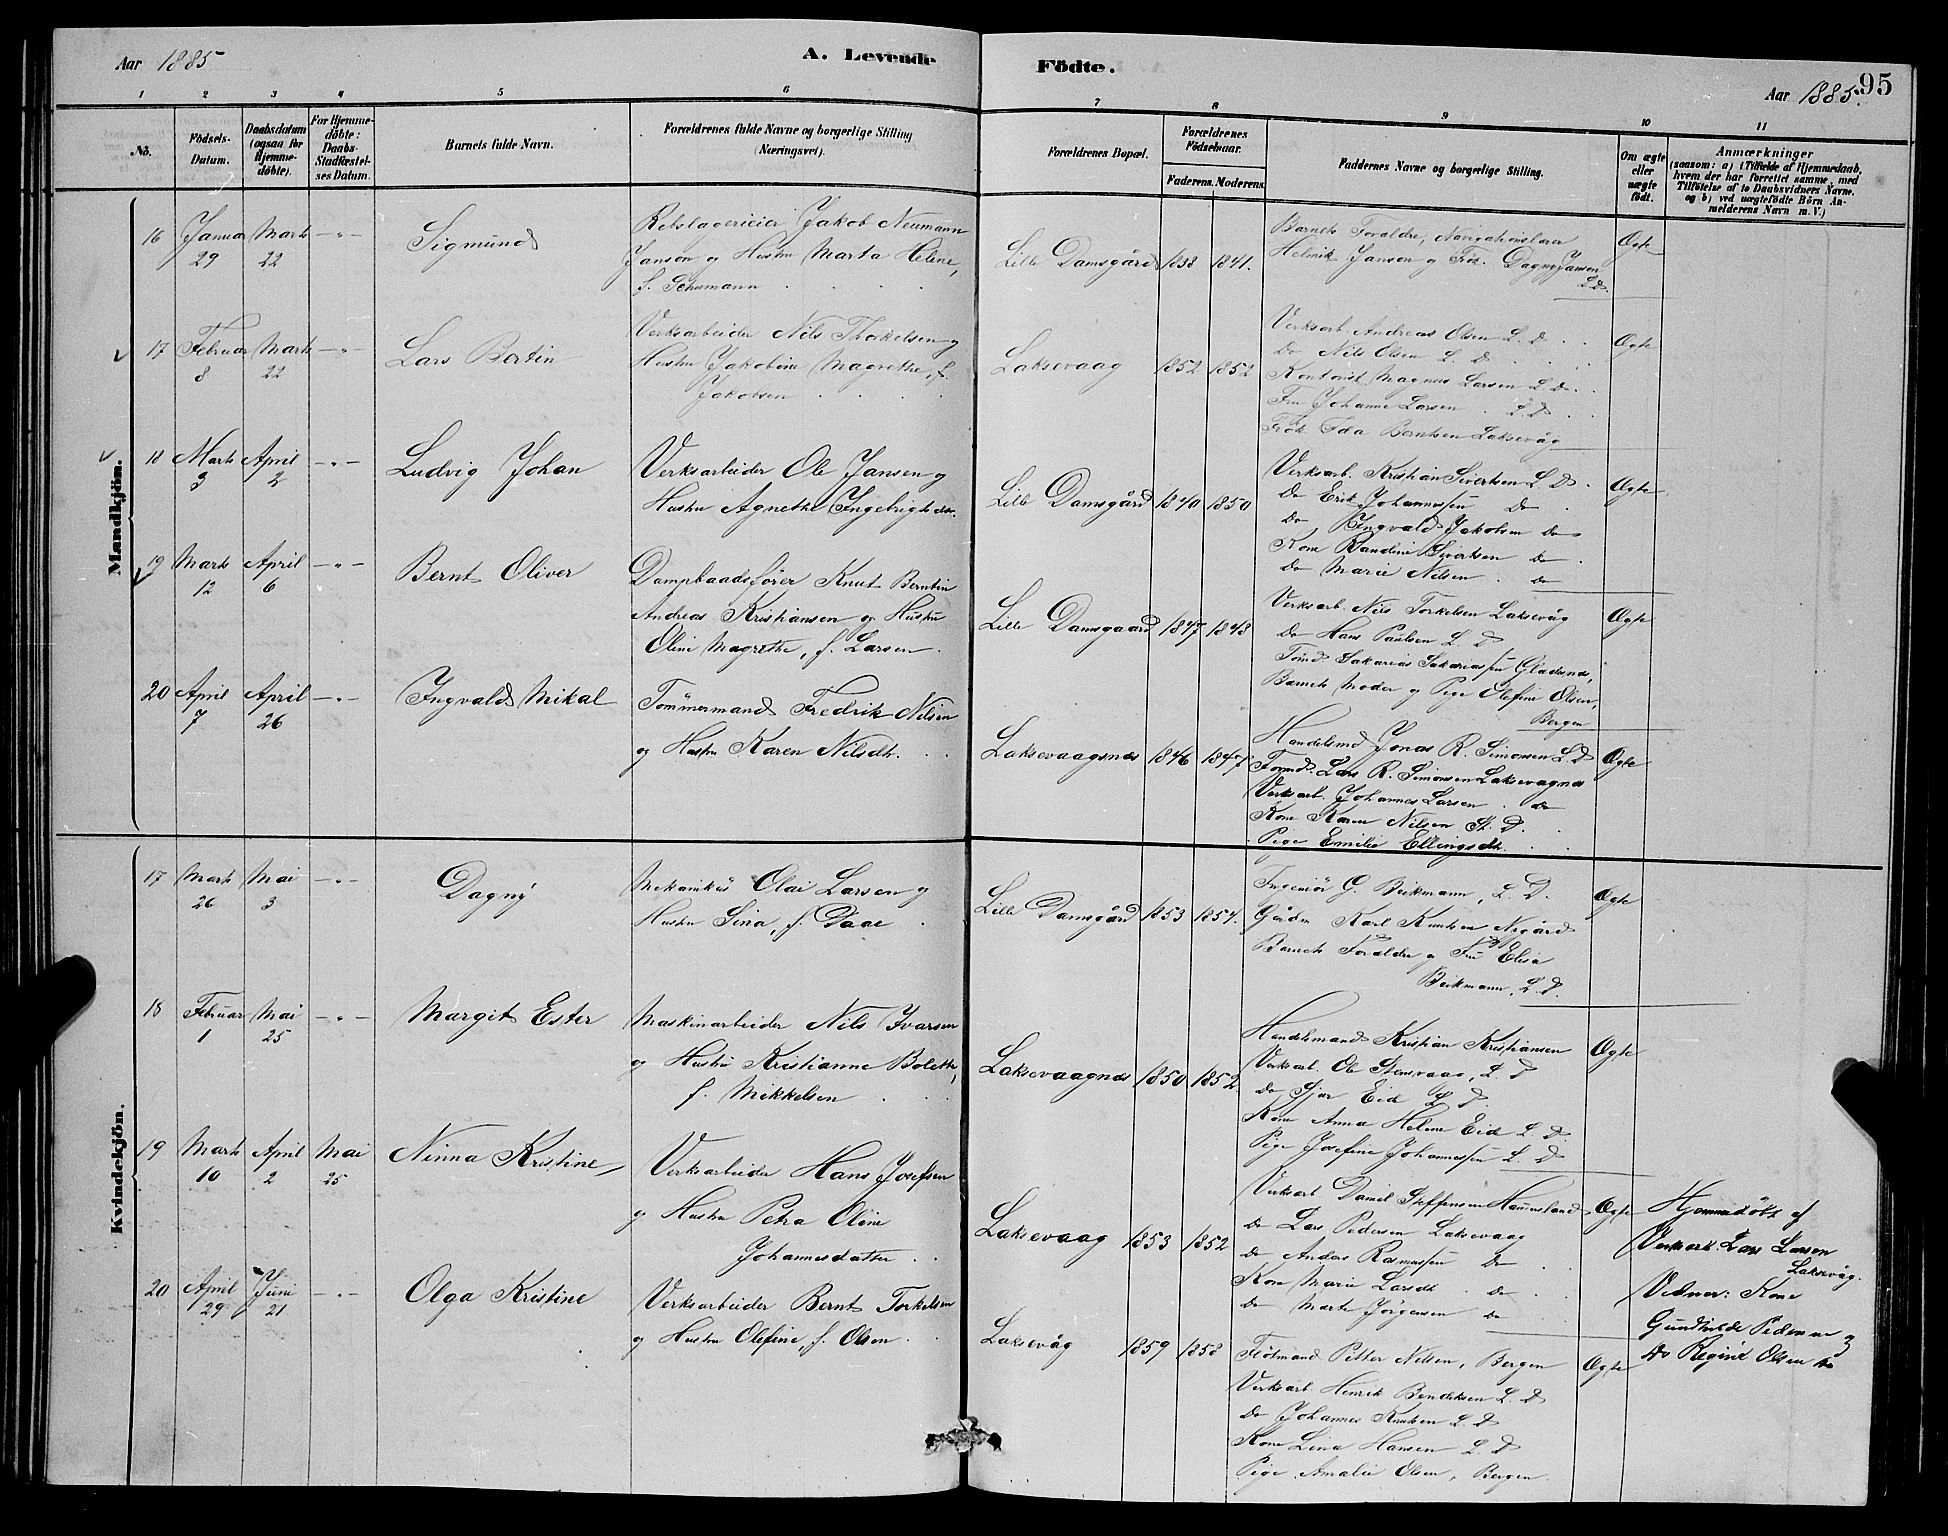 Aar 1885
A. Levende
Födte.
Aar 1885.
95
1 2 3 4 5 6 7 8 9 10 11
No.
Födsels-
Datum.
Daabsdatum
(ogsaa for
Hjemme-
döbte).
For Hjemme-
döbte:
Daabs-
Stadfæstel-
ses Datum.
Barnets fulde Navn.
Forældrenes fulde Navne og borgerlige Stilling
(Næringsvei).
Forældrenes Bopæl.
Forældrenes
Födselsaar.
Faderens. Moderens.
Faddernes Navne og borgerlige Stilling.
Om ægte
eller
uægte
födt.
Anmærkninger
(saasom: a) i Tilfælde af Hjemmedaab,
hvem der har forrettet samme, med
Tilföielse af to Daabsvidners Navne.
og b) ved uægtefödte Börn An-
melderens Navn m. V.)
Mandkjön.
16 Januar 29 Marts 22 -"- Sigmund
Rebslagerieier Jakob Neumann
Janson og Hustru Marta Helene,
f. Schumann
Lille Damsgård 1838 1841.
Barnets Forældre, Navigationslærer
Helmik Janson og Frök. Dagny Janson
L D.
Ægte
17 Februar 8 Marts 22 -"- Lars Bertin
Verksarbeider Nils Thorkelsen og
Hustru Jakobine Magrethe, f.
Jakobsen
Laksevaag 1852 1852
Verksarb. Andreas Olsen L. D.
Do Nils Olsen L. D
Kontorist Magnus Larsen L. D.
Fru Johanne Larsen L. D.
Frök Ida Berntsen Laksevåg
Ægte
18 Marts 3 April 2 -"- Ludvig Johan
Verksarbeider Ole Jansen og
Hustru Agnethe Ingebrigtsdr.
Lille Damsgård 1840 1850
Verksarb. Kristian Sivertsen L D.
Do Erik Johannessen Do
Do Ingvald Jakobsen Do
Kone Randine Sivertsen Do
Do Marie Nilsen Do
Ægte
19 Marts 12 April 6 -"- Bernt Oliver
Dampbaadsförer Knut Berntin
Andreas Kristiansen og Hustru
Oline Magrethe, f. Larsen.
Lille Damsgaard 1847 1848
Verksarb. Nils Torkelsen Laksevåg
Do Hans Paulsen L. D
Tömd Sakarias Sakariassen Gladsnes,
Barnets Moder og Pige Olefine Olsen,
Bergen
Ægte
20 April 7 April 26 -"- Ingvald Mikal
Tömmermand Fredrik Nilsen
og Hustru Karen Nilsdtr.
Laksevaagsnæs 1846 1847
Handelsmd Jonas R. Simonsen L D
Tömd. Lars R. Simonsen Laksevagnes
Verksarb. Johannes Larsen do
Kone Karen Nilsen St. D.
Pige Emilie Ellingsdtr
Ægte
Kvindekjön.
17 Marts 26 Mai 3 -"- Dagny
Mekanikus Olai Larsen og
Hustru Sina, f. Daae
Lille Damsgård 1853 1854.
Ingeniör G. Beikmann, L. D.
Gårdm Karl Knutsen Nygård
Barnets Forældre og Fru Elisa
Beikmann, L. D.
Ægte
18 Februar 1 Mai 25 -"- Margit Ester
Maskinarbeider Nils Ivarsen
og Hustru Kristianne Bolette,
f. Mikkelsen
Laksevaagnæs 1850 1852
Handelsmand Kristian Kristiansen
Verksarb. Ole Stensvaag, L. D
do Sjur Eid L D.
Kone Anna Helene Eid L D.
Pige Josefine Johannessen L. D
Ægte
19 Marts 10 April 2 Mai 25 Ninna Kristine,
Verksarbeider Hans Josefsen
og Hustru Petra Oline
Johannesdatter
Laksevaag 1853 1852
Verksarb. Daniel Steffensen Hammersland
Do Lars Pedersen Laksevaag
do Anders Rasmussen Do
Kone Marie Larsdtr do
do Marte Jörgensen do
Ægte
Hjemmedöbt af
Verksarb. Lars Larsen
Laksevåg.
Vidner: Kone
Gundhilde Pedersen og
do Regine Olsen do
20 April 29 Juni 21 -"- Olga Kristine
Verksarbeider Bernt Torkelsen
og Hustru Olefine f. Olsen
Laksevåg 1859 1858
Flötmand Petter Nilsen, Bergen
Verksarb. Henrik Bendiksen L. D
do Johannes Knutsen L. D
Kone Lina Hansen L. D
Pige Amalie Olsen, Bergen.
Ægte